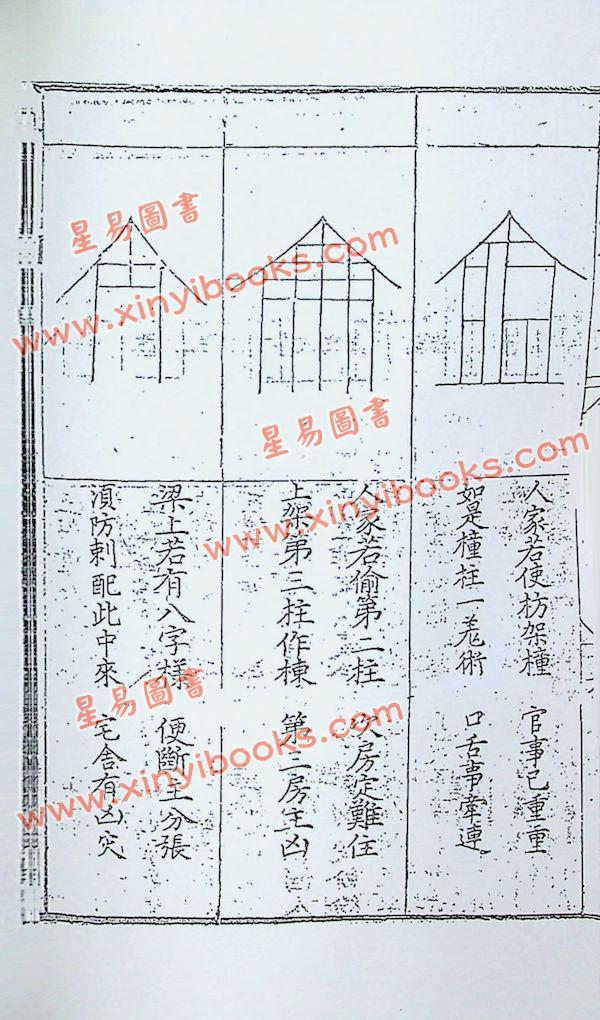 人家若使枋架橦 官事已重重
如是橦柱一術 口舌事牽連
人家若偷第二柱 次房定難住
上架弟三柱作棟 第二房主凶
梁上若有八字樣 便斷主分張
湏防刺配此中來 宅舍有凶灾
星易圖書
www.xinyibooks.com
星易圖書
www.xinyibooks.com
星易圖書
www.xinyibooks.com